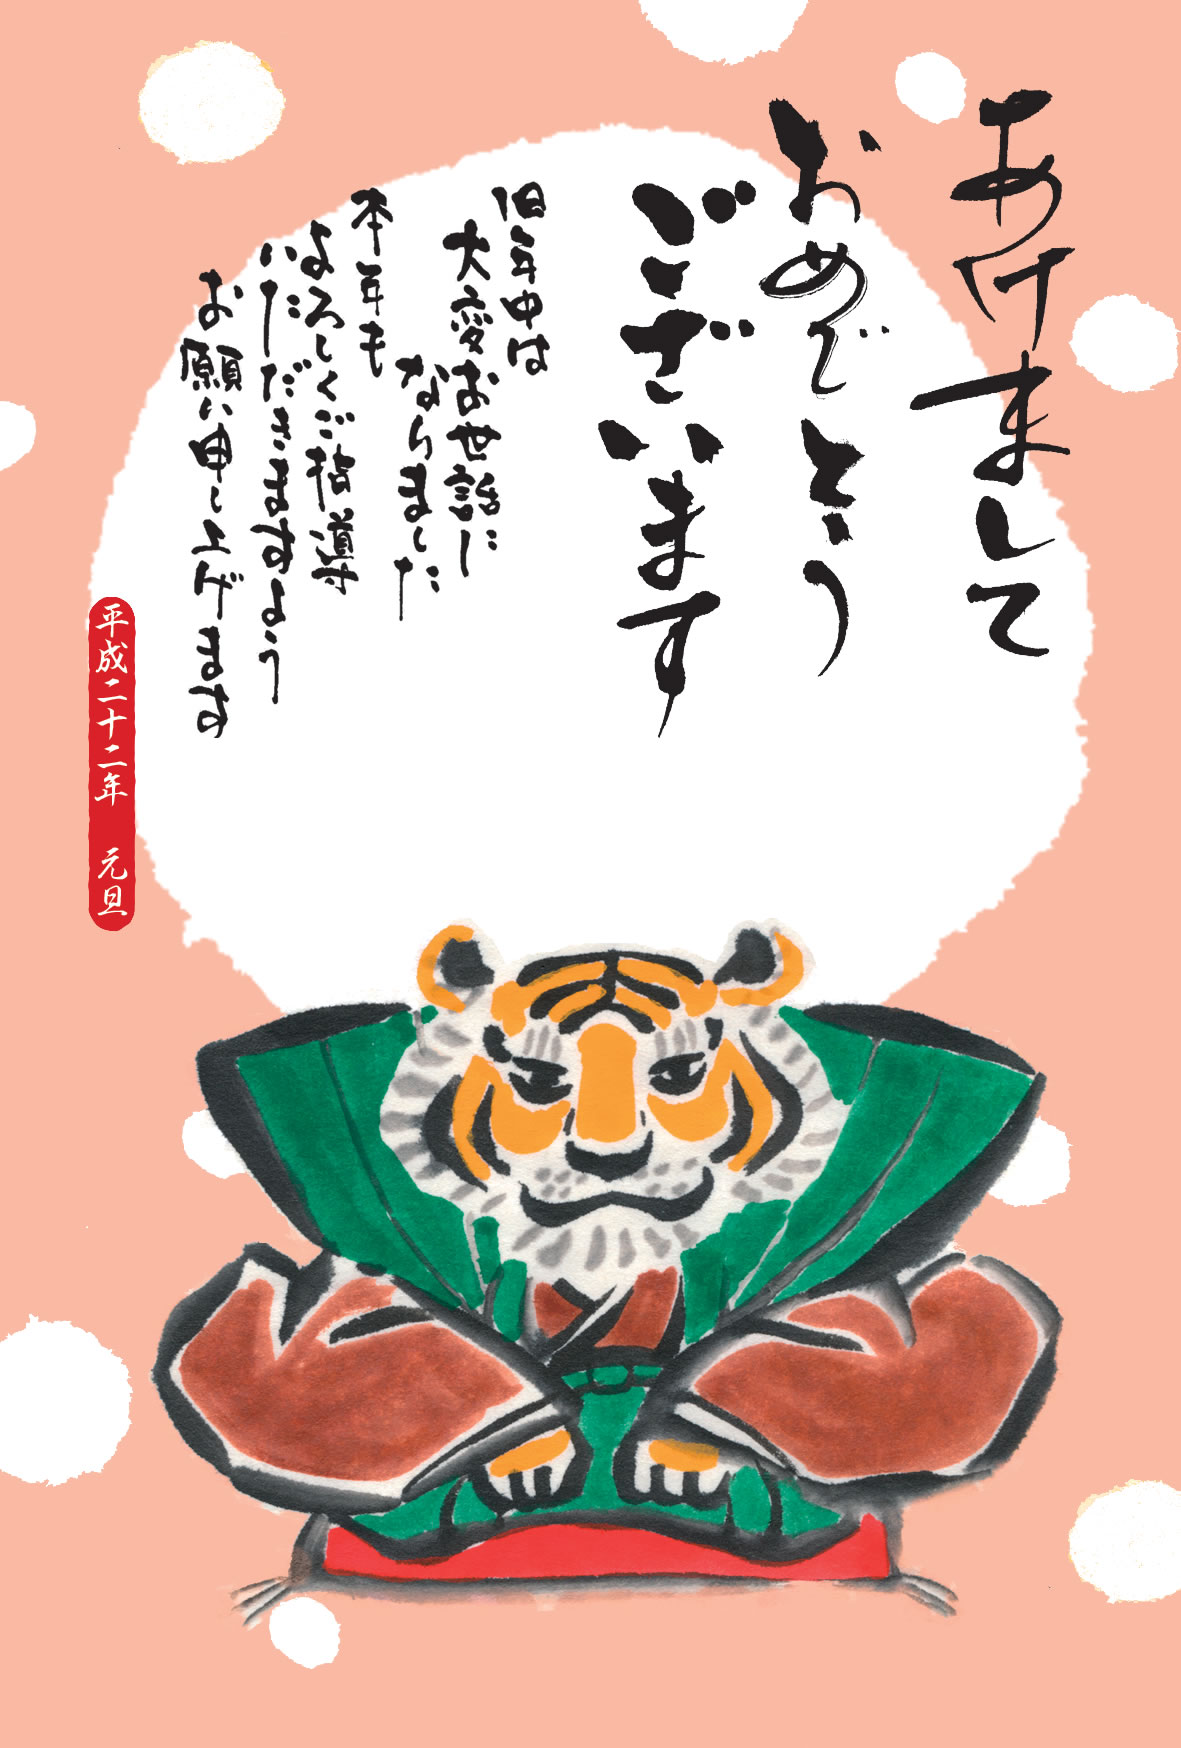 あけまして
おめでとう
ございます
旧年中は
大変お世話に
なりました
本年も
よろしくご指導
いただきますよう
お願い申し上げます
平成二十二年　元旦